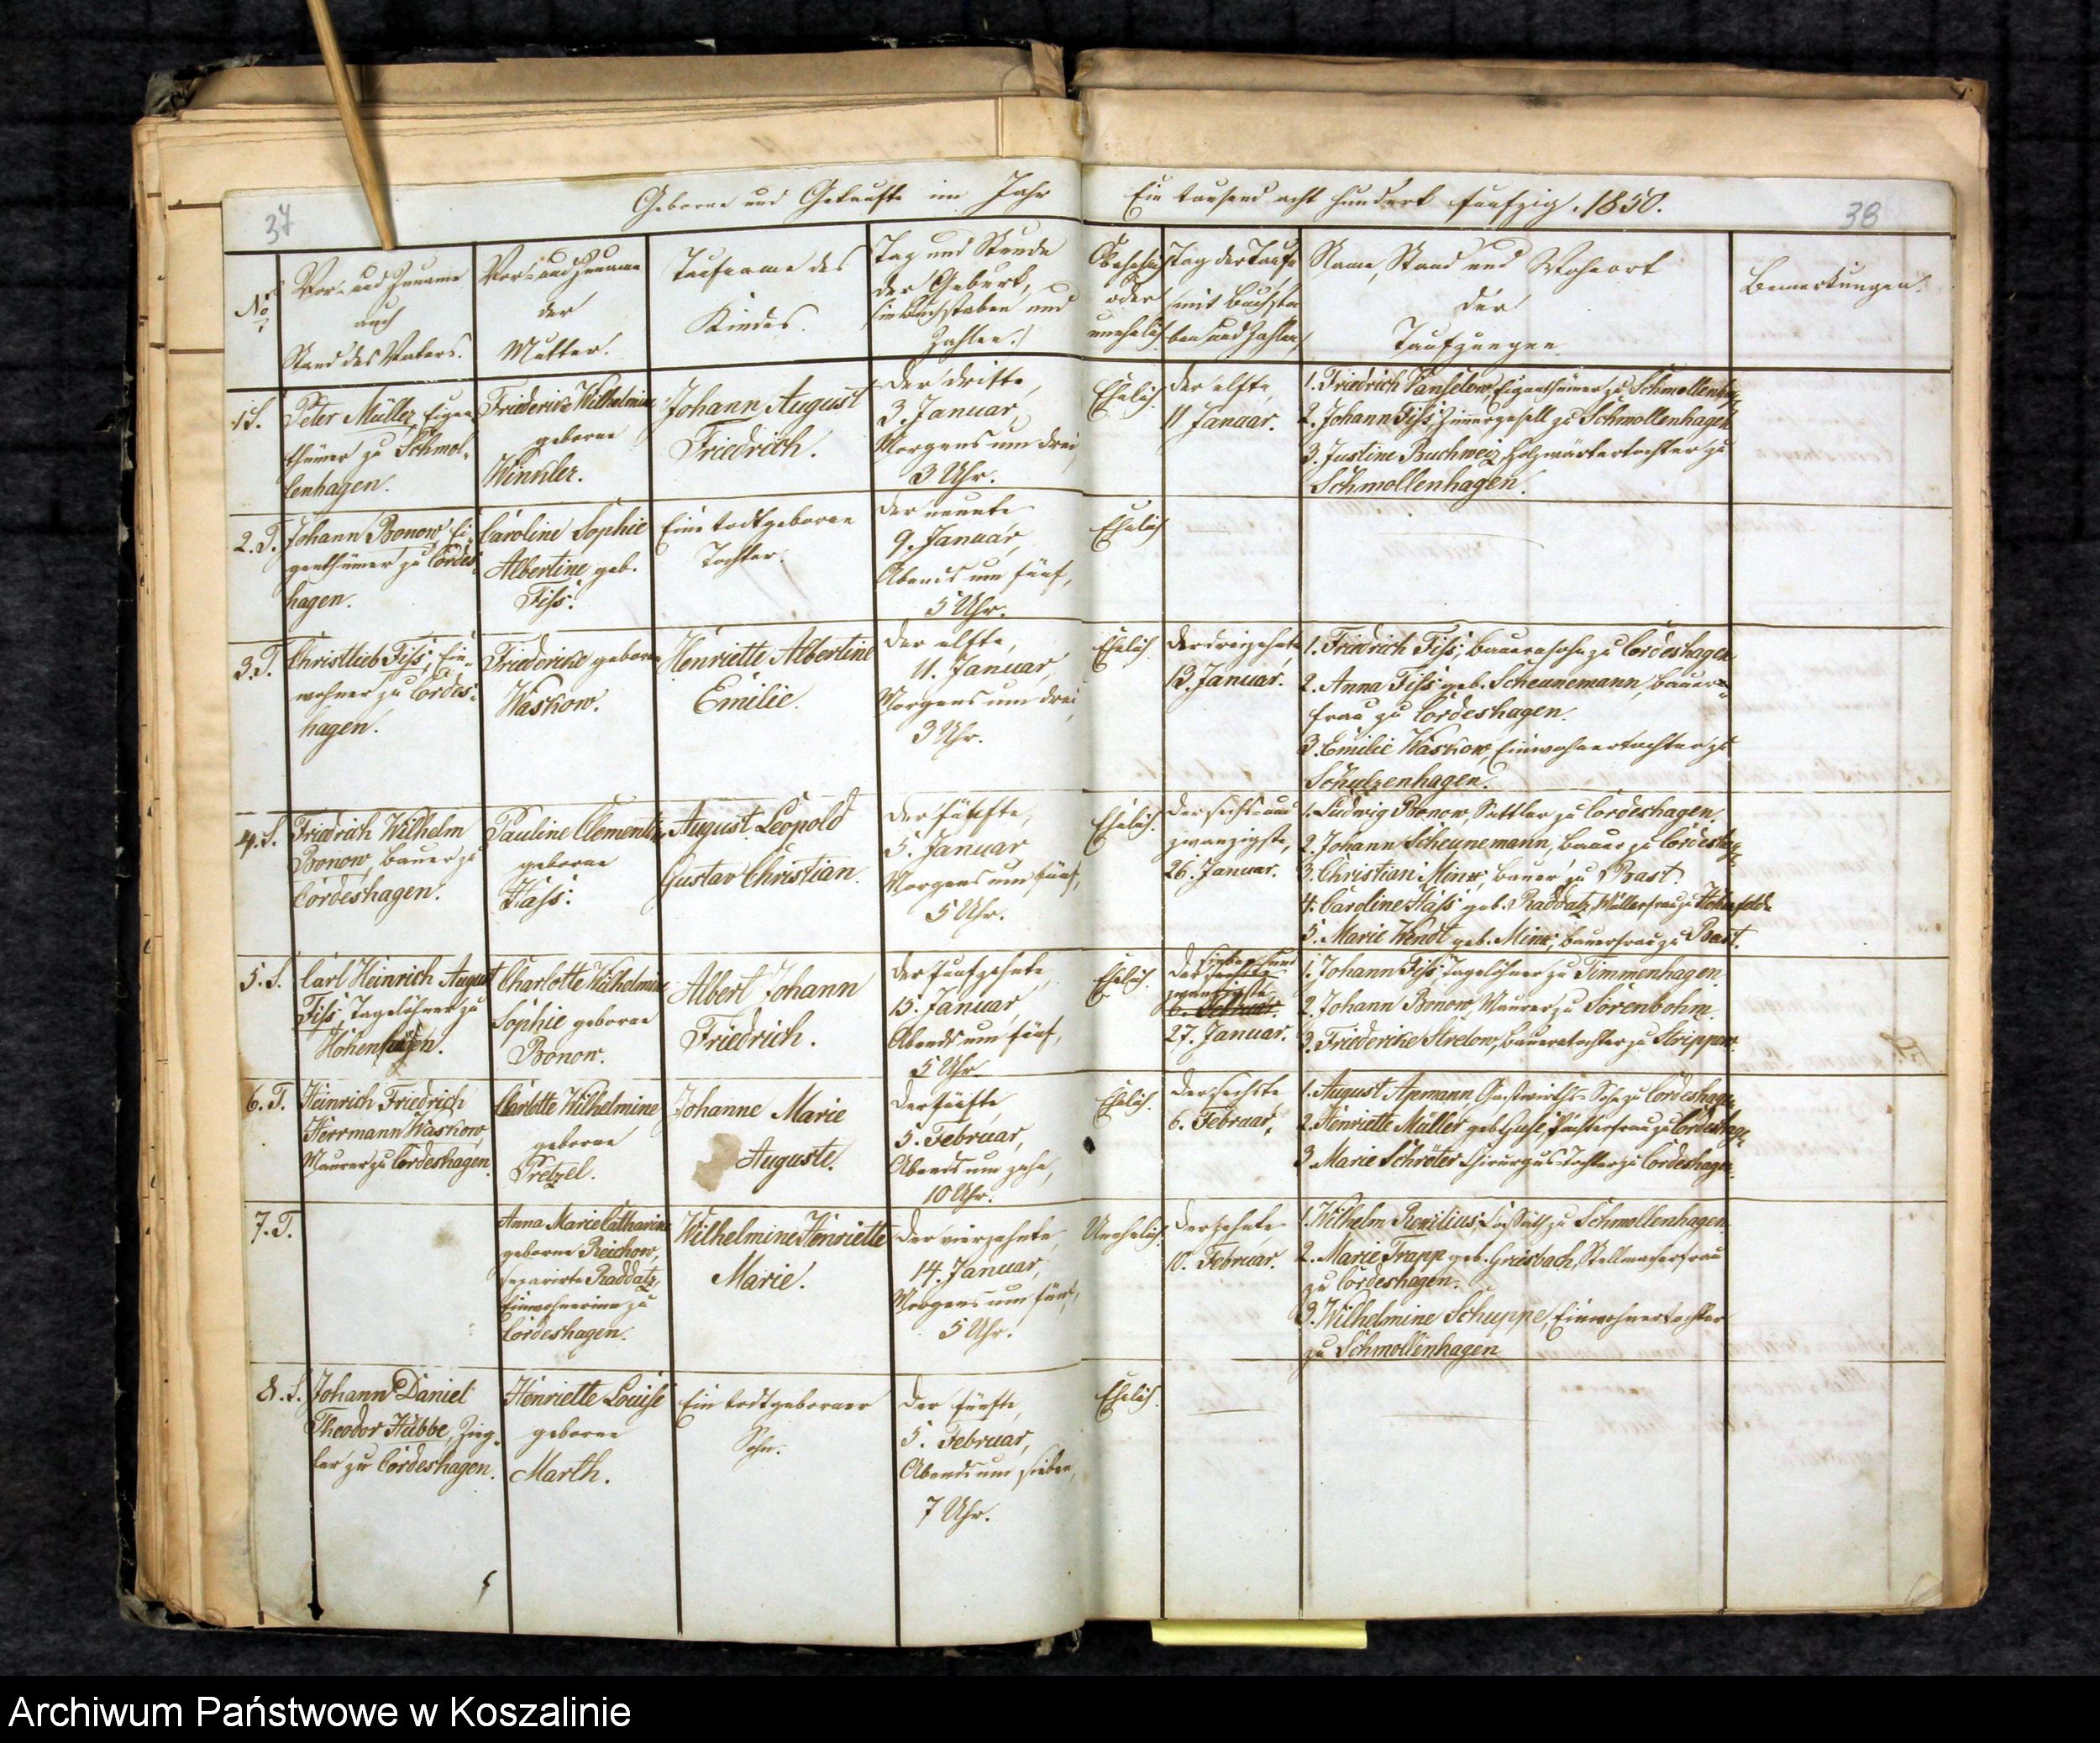 37
Geborne und Getaufte im Jahr
Ein tausend acht hundert fünfzig. 1850.
38
No
Vor- und Zuname
auch
Stand des Vaters.
Vor- und Zuname
der
Mutter.
Taufname des
Kindes.
Tag und Stunde
der Geburt,
(in Buchstaben und
Zahlen.)
Ob ehelich
oder
unehelich.
Tag der Taufe
mit Buchsta
ben und Zahlen,
Name, Stand und Wohnort
der
Taufzeugen.
Bemerkungen.
1. S.
Peter Müller, Eigen
thümer zu Schmol-
lenhagen.
Friedericke Wilhelmine
geborne
Winkler.
Johann August
Friedrich.
der dritte,
3. Januar,
Morgens um drei,
3 Uhr.
Ehelich.
der elfte,
11 Januar.
1. Friedrich Vanselow, Eigenthümer zu Schmollenhagen
2. Johann Fiss, Zimmergesell zu Schmollenhagen
3. Justine Buchweiz, Holzwärtertochter zu
Schmollenhagen.
2. T.
Johann Bonow Ei-
genthümer zu Cordes-
hagen.
Caroline Sophie
Albertine geb.
Fiss.
Eine todtgeborne
Tochter.
der neunte
9. Januar,
Abends um fünf,
5 Uhr.
Ehelich
3. T.
Christlieb Fiss, Ein-
wohner zu Cordes-
hagen.
Friedericke geborne
Waskow.
Henriette Albertine
Emilie.
der elfte,
11. Januar,
Morgens um drei,
3 Uhr.
Ehelich.
der dreizehnte
13. Januar.
1. Friedrich Fiss, Bauersohn zu Cordeshagen
2. Anna Fiss geb. Scheunemann, Bauer-
frau zu Cordeshagen.
3. Emilie Waskow, Einwohnertochter zu
Schulzenhagen.
4. S.
Friedrich Wilhelm
Bonow, Bauer zu
Cordeshagen.
Pauline Clementine
geborne
Hass.
August Leopold
Gustav Christian.
der fünfte,
5. Januar
Morgens um fünf,
5 Uhr.
Ehelich.
der sechs und
zwanzigste,
26. Januar.
1. Ludwig Bonow, Sattler zu Cordeshagen.
2. Johann Scheunemann, Bauer zu Cordeshagen
3. Christian Mink, Bauer zu Bast.
4. Caroline Hass geb. Raddatz, Müllerfrau zu Hohenfelde
5. Marie Wendt geb. Mink, Bauerfrau zu Bast.
5. S.
Carl Heinrich August
Fiss, Tagelöhner zu
Hohenhagen.
Charlotte Wilhelmine
Sophie geborne
Bonow.
Albert Johann
Friedrich.
der fünfzehnte,
15. Januar,
Abends um fünf,
5 Uhr.
Ehelich.
sieben und
der sechste
zwanzigste
6. Februar.
27. Januar.
1. Johann Fiss Tagelöhner zu Timmenhagen.
2. Johann Bonow, Maurer zu Sorenbohm.
3. Friedericke Strelow, Bauertochter zu Strippow.
6. T.
Heinrich Friedrich
Herrmann Waskow,
Maurer zu Cordeshagen.
Charlotte Wilhelmine
geborne
Pretzel.
Johanne Marie
Auguste.
der fünfte,
5. Februar,
Abends um zehn,
10 Uhr.
Ehelich.
der sechste
6. Februar,
1. August Apemann Gastwirths-Sohn zu Cordeshagen
2. Henriette Müller geb. Hass, Pächterfrau zu Cordeshagen
3. Marie Schröter Chirurgus-Tochter zu Cordeshagen.
7. T.
Anna Marie Catharine
geborne Reichow,
separirte Raddatz,
Einwohnerinn zu
Cordeshagen.
Wilhelmine Henriette
Marie.
der vierzehnte,
14. Januar,
Morgens um fünf,
5 Uhr.
Unehelich.
der zehnte
10. Februar.
1. Wilhelm Rexilius, zu Schmollenhagen.
2. Marie Trapp geb. Griesbach, Stellmacherfrau
zu Cordeshagen.
3. Wilhelmine Schuppe, Einwohnertochter
zu Schmollenhagen
8. S.
Johann Daniel
Theodor Hübbe, Zieg-
ler zu Cordeshagen.
Henriette Louise
geborne
Marth.
Ein todtgeborner
Sohn.
der fünfte,
5. Februar,
Abends um sieben,
7 Uhr.
Ehelich.
Archiwum Państwowe w Koszalinie